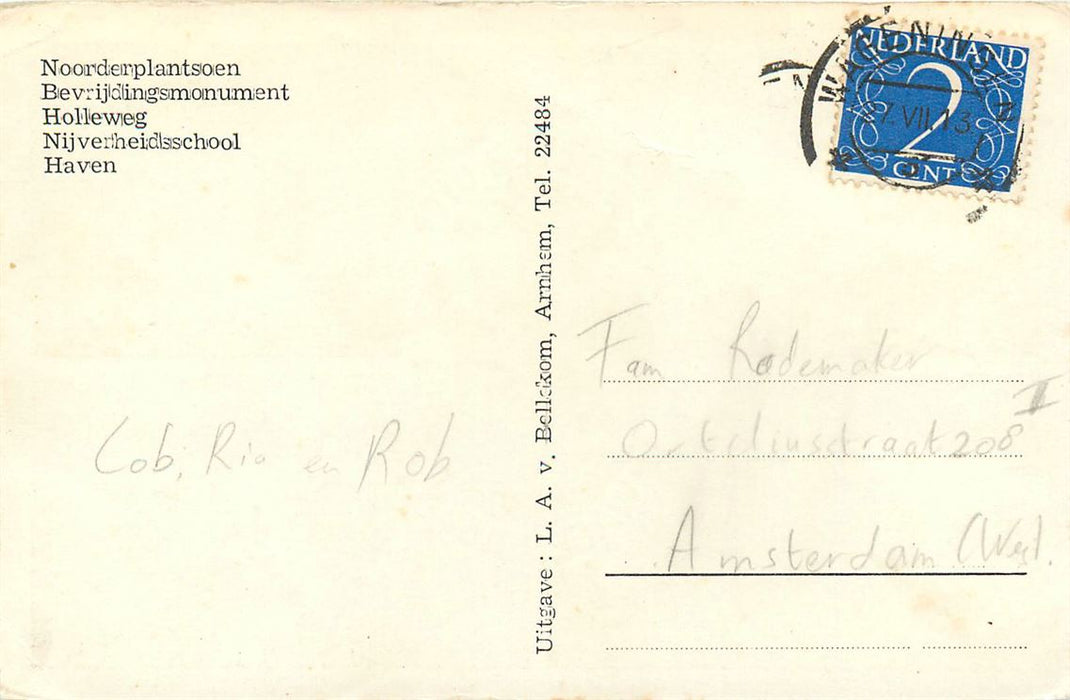 Noorderplantsoen
Bevrijdingsmonument
Holleweg
Nijverheidsschool
Haven
Cob, Ria en Rob
Uitgave : L. A. v. Bellekom, Arnhem, Tel. 22484
WAGENINGEN
NEDERLAND
2
CENT
VII 13
Fam Rademaker
Orteliusstraat 208 II
Amsterdam (West.